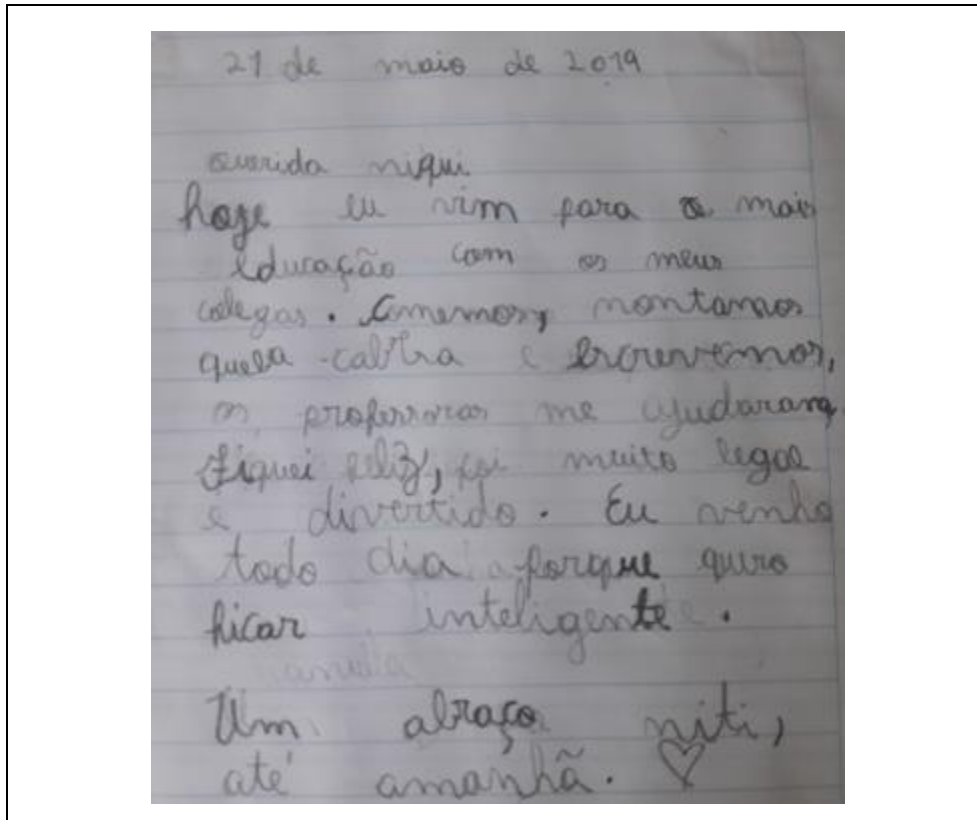 21 de maio de 2019
querida niqui
hoje eu vim para o mais
educação com os meus
colegas. Comemos, montamos
queba-cabEra e escrevemos,
as professoras me ajudaram,
Fiquei feliz, foi muito legal
e divertido. Eu venho
todo dia porque quiro
ficar inteligente.
Um abraço niti,
até amanhã.